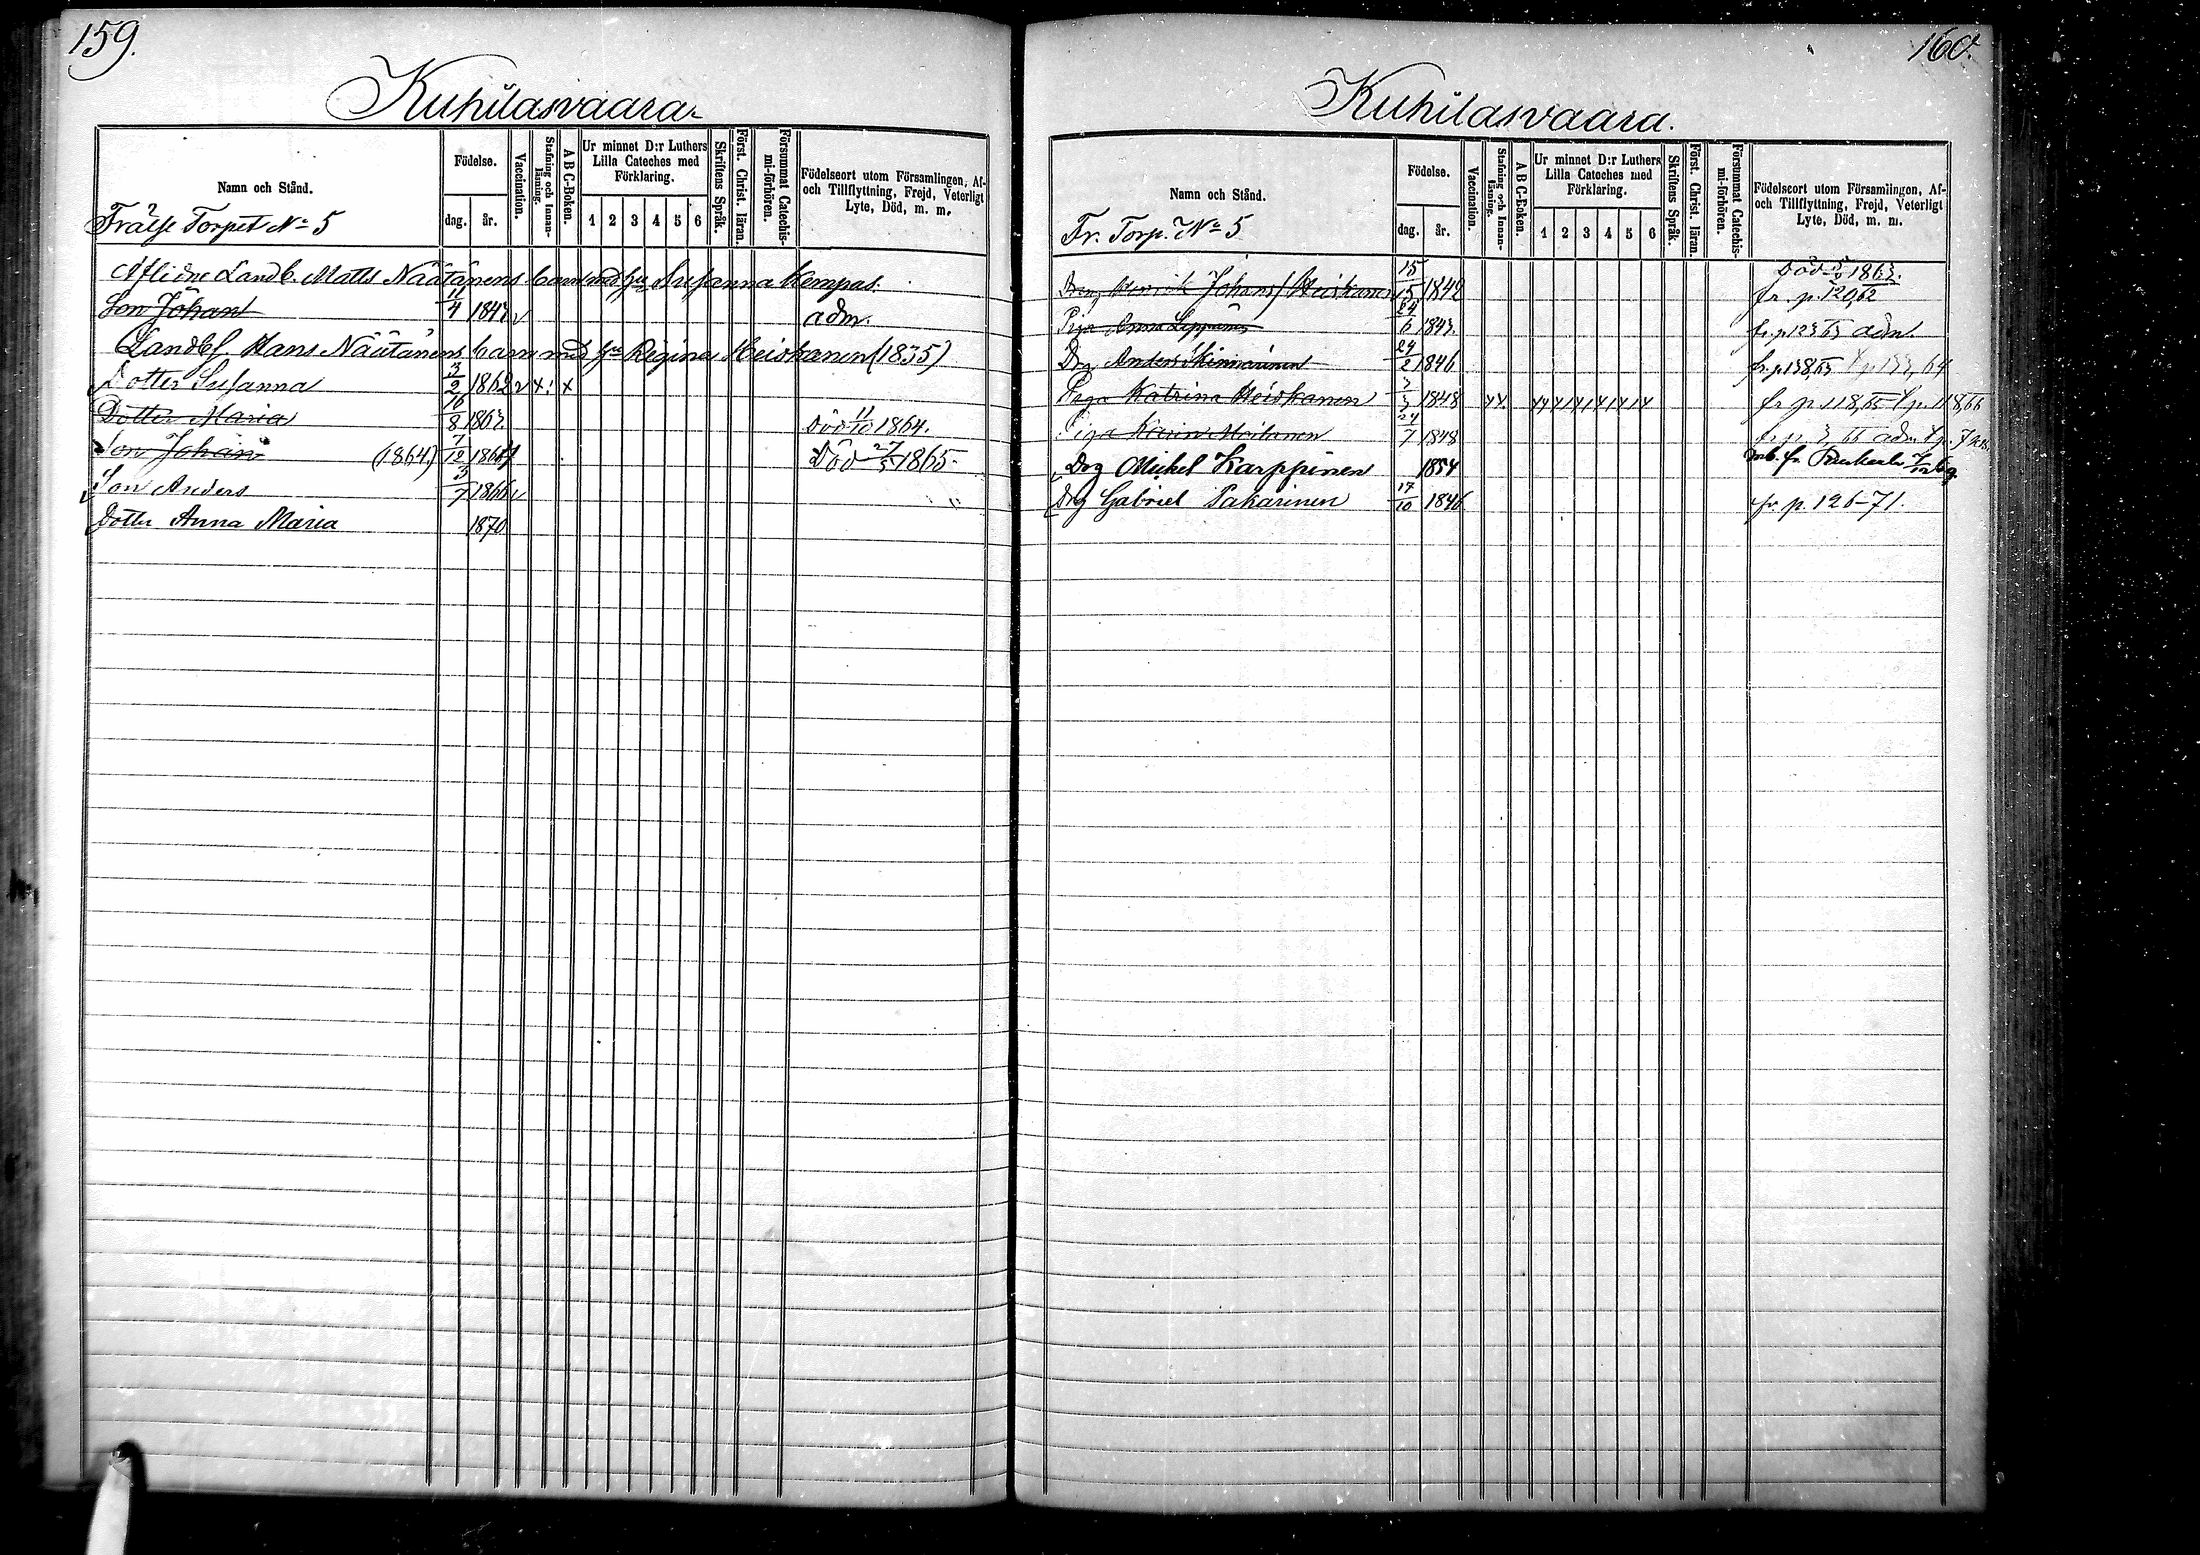 159.
Kuhilasvaara
Namn och Stånd.
Födelse.
dag. år.
Vaccination.
Stafning och Innanläsning.
A B C-Boken.
Ur minnet D:r Luthers Lilla Cateches med Förklaring.
1 2 3 4 5 6
Skriftens Språk.
Först. Christ. läran.
Försummat Catechismi-förhören.
Födelseort utom Församlingen, Af- och Tillflyttning, Frejd, Veterligt Lyte, Död, m. m.
Frälse Torpet No 5
Aflidne Landb. Matts Näätänens barn med hu Susanna Kempas.
Son Johan 11/4 1843 v adm.
Landbf. Hans Näätänens barn med hu Regina Heiskanen (1835)
Dotter Susanna 3/2 1862 v x: x
Dotter Maria 16/8 1863. Död 11/10 1864.
Son Johan (1864) 7/12 1864 Död 27/5 1865.
Son Anders 3/7 1866 v
Dotter Anna Maria 1870
160.
Kuhilasvaara.
Namn och Stånd.
Födelse.
dag. år.
Vaccination.
Stafning och Innanläsning.
A B C-Boken.
Ur minnet D:r Luthers Lilla Cateches med Förklaring.
1 2 3 4 5 6
Skriftens Språk.
Först. Christ. läran.
Försummat Catechismi-förhören.
Födelseort utom Församlingen, Af- och Tillflyttning, Frejd, Veterligt Lyte, Död, m. m.
Fr. Torp. No 5
Död 1863.
Henrik Johans Heiskanen 15/5 1842 fr. p. 120, 62
Piga Anna Leppänen 24/6 1843. fr. p 123, 65 adm.
Drg Anders 29/2 1846 fr. p 138, 65
Piga Katrina Heiskanen 1848 fr p. 118, 65 p. 118, 66
Piga Karin Moilanen 24/7 1848 66 adm
Drg Mickel Karppinen 1854
Drg Gabriel Pakarinen 17/10 1846 fr. p. 126-71.